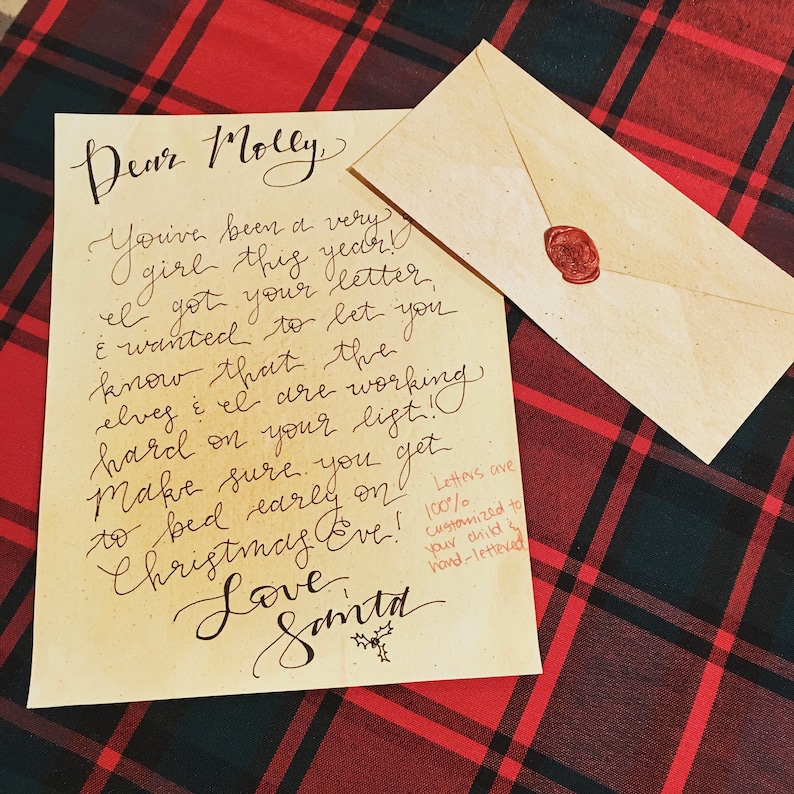 Dear Molly,
You've been a very
girl this year!
I got your letter,
& wanted to let you
know that the
elves & I are working
hard on your list!
Make sure you get
to bed early on
Christmas Eve!
Love,
Santa
Letters are
100%
customized to
your child &
hand-lettered